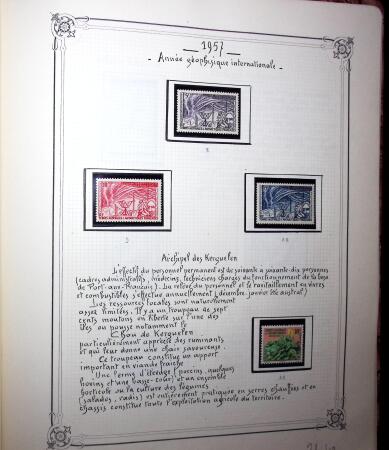 1957
- Année géophysique internationale -
Archipel des Kerguelen
L'effectif du personnel permanent est de soixante a soixante-dix personnes
(cadres administratifs, médecins, techniciens chargés du fonctionnement de la base
de Port-aux-Français). La relève du personnel et le ravitaillement en vivres
et combustibles s'effectue annuellement (décembre-janvier été austral)
Les ressources locales sont naturellement
assez limitées. Il y a un troupeau de sept
cents moutons en liberté sur l'une des
îles ou pousse notamment le
Chou de Kerguelen
particulièrement apprécié des ruminants
et qui leur donne une chair savoureuse.
Ce troupeau constitue un apport
important en viande fraîche
Une ferme d'élevage (porcins, quelques
bovins et une basse-cour) et un ensemble
horticole ou la culture des légumes
(salades, radis) est entièrement pratiquée en serres chauffées et en
chassis constitue toute l'exploitation agricole du territoire.